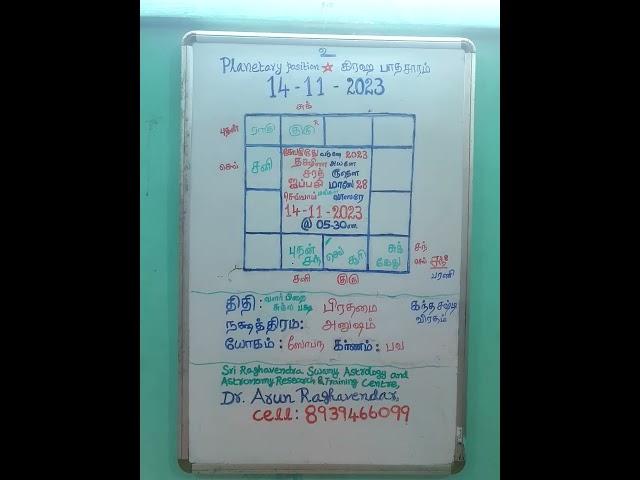 உ
Planetary position ☆ கிரஹ பாதசாரம்
14 - 11 - 2023
சுக்
புதன் ராகு குரு R
செவ் சனி
சோபகிருது வருஷ 2023
சரத் ருதௌ
ஐப்பசி மாஸ 28
செவ்வாய் வாஸரே
14-11-2023
@ 05-30
புதன் சந் செவ் சுக் கேது
சந்
செவ்
பரணி
சனி குரு
திதி: வளர் பிறை பிரதமை கந்த சஷ்டி
சுக்ல பக்ஷ விரதம்
நக்ஷத்திரம்: அனுஷம்
யோகம்: ஸோபந கர்ணம்: பவ
Sri Raghavendra Swamy Astrology and
Astronomy Research & Training Centre,
Dr. Arun Raghavendar,
Cell: 8939466099